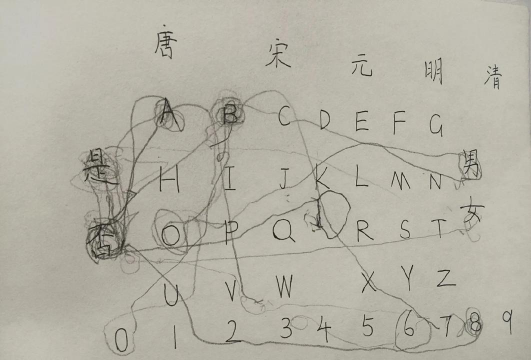 唐 宋 元 明 清
A B C D E F G
是 H I J K L M N 男
否 O P Q R S T 女
U V W X Y Z
0 1 2 3 4 5 6 7 8 9